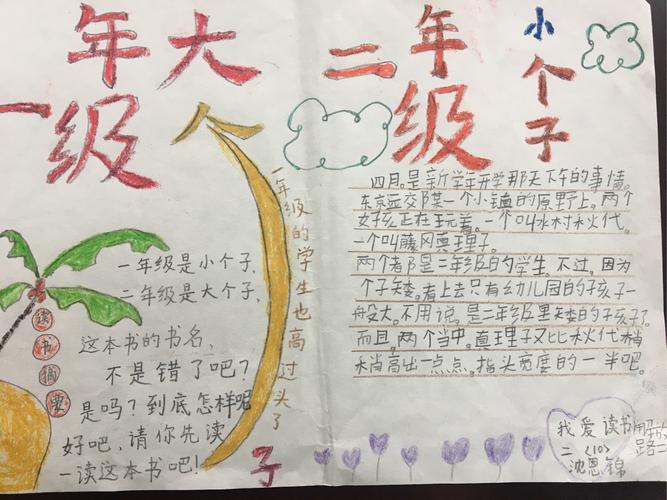 一年级大个子
二年级小个子
一年级的学生也高过头了
读书摘要
一年级是小个子，
二年级是大个子，
这本书的书名，
不是错了吧？
是吗？到底怎样呢
好吧，请你先读
一读这本书吧！
四月。是新学年开学那天下午的事情。
东京远交阝某一个小镇的原野上。两个
女孩正在玩着。一个叫水村秋代。
一个叫藤冈真理子。
两个者阝是二年级的学生。不过。因为
个子矮。看上去只有幼儿园的孩子一
般大。不用说。是二年级里矮的孩子了。
而且。两个当中。真理子又比秋代稍
稍高出一点点。指头宽度的一半吧。
我爱读书
二〈10〉
沈恩锦
解放
路二